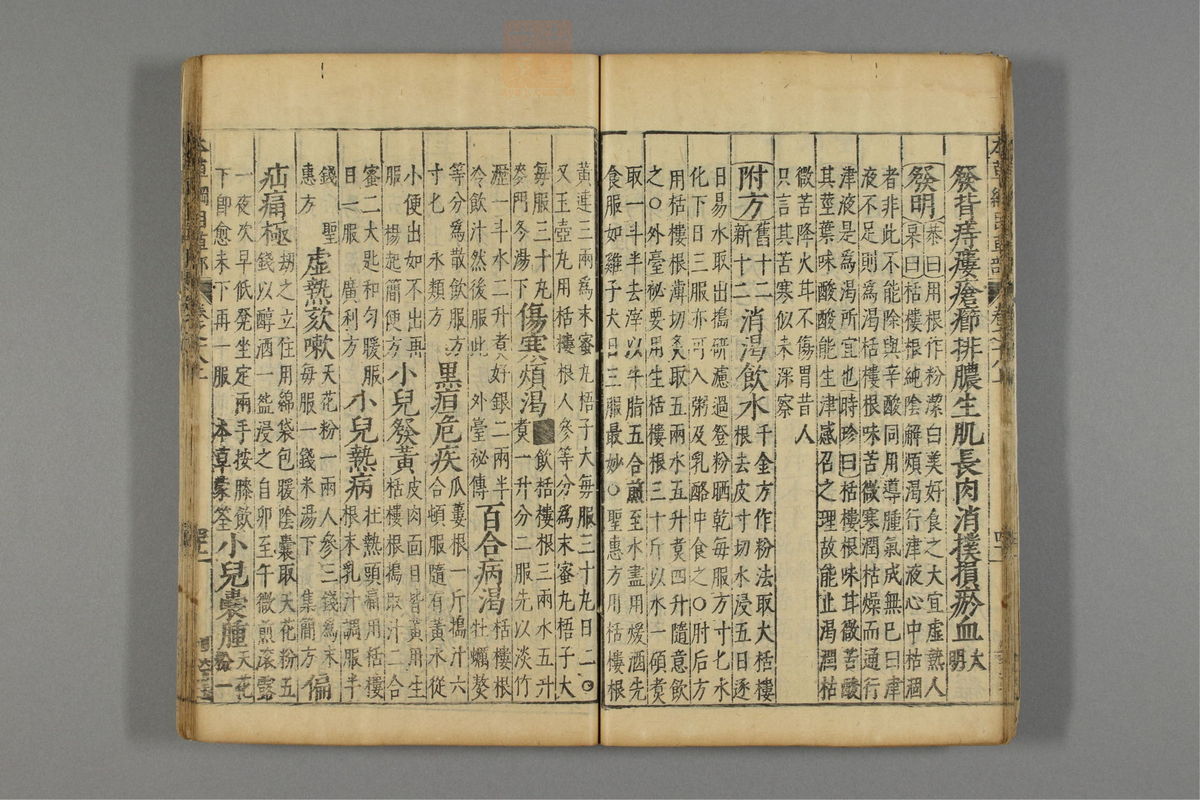 發背痔瘻瘡癤排膿生肌長肉消撲損瘀血大明
發明恭曰用根作粉潔白美好食之大宜虛熱人
杲曰栝樓根純陰解煩渴行津液心中枯涸
者非此不能除與辛酸同用導腫氣成無已曰津
液不足則爲渴栝樓根味苦微寒潤枯燥而通行
津液是爲渴所宜也時珍曰栝樓根味甘微苦酸
其莖葉味酸酸能生津感召之理故能止渴潤枯
微苦降火甘不傷胃昔人
只言其苦寒似未深察
附方舊十二新十二消渴飲水千金方作粉法取大栝樓
根去皮寸切水浸五日逐
日易水取出搗研濾過澄粉晒乾每服方寸七水
化下日三服亦可入粥及乳酪中食之〇肘后方
用栝樓根薄切炙取五兩水五升煑四升隨意飲
之〇外臺秘要用生栝樓根三十斤以水一碩煑
取一斗半去滓以牛脂五合煎至水盡用煖酒先
食服如雞子大日三服最妙〇聖惠方用栝樓根
黃連三兩爲末蜜丸梧子大每服三十丸日二〇
又玉壺丸用栝樓根人參等分爲末蜜丸梧子大
每服三十丸
麥門冬湯下傷寒煩渴飲栝樓根三兩水五升
煑一升分二服先以淡竹
瀝一斗水二升煑好銀二兩半
冷飲汁然後服此外臺祕傳百合病渴栝樓根
牡蠣熬
等分爲散飲服方
寸七永類方黑疸危疾瓜蔞根一斤搗汁六
合頓服隨有黃水從
小便出如不出再
服楊起簡便方小兒發黃皮肉面目皆黃用生
栝樓根搗取汁二合
蜜二大匙和勻暖服
日一服廣利方小兒熱病壯熱頭痛用栝樓
根末乳汁調服半
錢聖
惠方虛熱欬嗽天花粉一兩人參三錢爲末
每服一錢米湯下集簡方偏
疝痛極刼之立住用綿袋包暖陰囊取天花粉五
錢以醇酒一盌浸之自卯至午微煎滾露
一夜次早低凳坐定兩手按膝飲
下即愈未下再一服本草蒙筌小兒囊腫天花
粉一